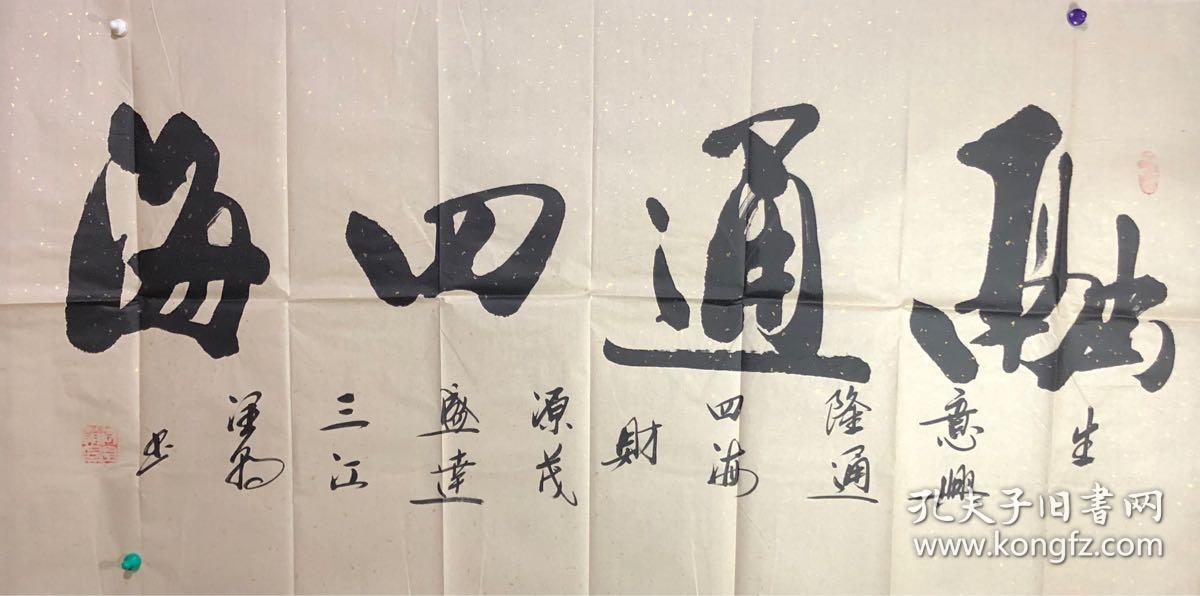 融通四海
生
意興
隆通
四海
財
源茂
盛達
三江
书
孔夫子旧书网
www.kongfz.com